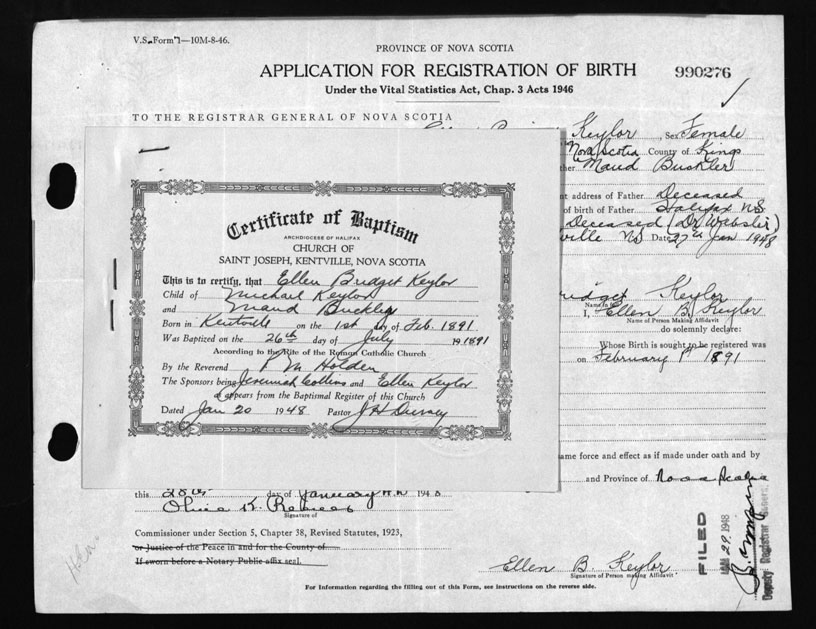 V.S. Form 1—10M-8-46.
PROVINCE OF NOVA SCOTIA
APPLICATION FOR REGISTRATION OF BIRTH
990276
Under the Vital Statistics Act, Chap. 3 Acts 1946
TO THE REGISTRAR GENERAL OF NOVA SCOTIA
Keylor, Sex Female
Nova Scotia County of Kings
Maud Buckler
nt address of Father Deceased
of birth of Father Halifax NS
Deceased (Dr Webster)
ville NS Date 27th Jan 1948
Certificate of Baptism
ARCHDIOCESE OF HALIFAX
CHURCH OF
SAINT JOSEPH, KENTVILLE, NOVA SCOTIA
This is to certify, that Ellen Bridget Keylor
Child of Michael Keylor
and Maud Buckley
Born in Kentville on the 1st day of Feb. 1891
Was Baptized on the 26th day of July 19 1891
According to the Rite of the Roman Catholic Church
By the Reverend P M Holden
The Sponsors being Jeremiah Collins and Ellen Keylor
as appears from the Baptismal Register of this Church
Dated Jan 20 1948 Pastor J H Durney
ridget Keylor
Name in full
I, Ellen B. Keylor
Name of Person Making Affidavit
do solemnly declare:
Whose Birth is sought to be registered was
on February 1st 1891
ame force and effect as if made under oath and by
and Province of Nova Scotia
this 28th day of January A.D. 1948
Olivia K.
Signature of
Commissioner under Section 5, Chapter 38, Revised Statutes, 1923,
or Justice of the Peace in and for the County of
If sworn before a Notary Public affix seal.
Ellen B. Keylor
Signature of Person making Affidavit
FILED
JAN 29 1948
Deputy Registrar General
For Information regarding the filling out of this Form, see instructions on the reverse side.